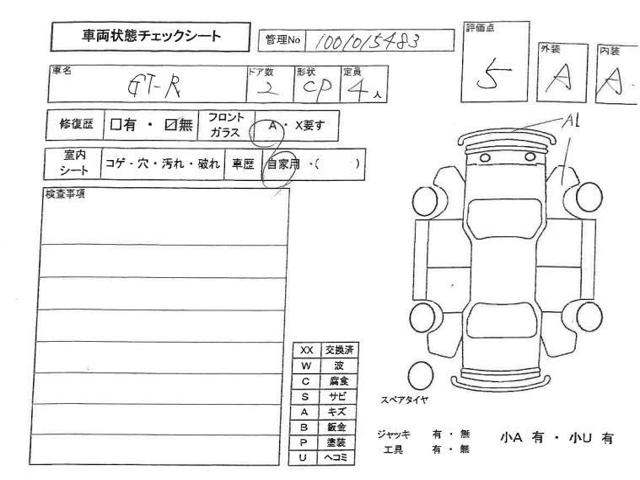 車両状態チェックシート
管理No 1001015483
評価点 5
外装 A
内装 A
車名 GT-R
ドア数 2
形状 CP
定員 4人
修復歴 □有・☑無
フロントガラス A・X要す
室内シート コゲ・穴・汚れ・破れ
車歴 自家用・( )
検査事項
A1
XX 交換済
W 波
C 腐食
S サビ
A キズ
B 鈑金
P 塗装
U ヘコミ
スペアタイヤ
ジャッキ 有・無
工具 有・無
小A 有・小U 有